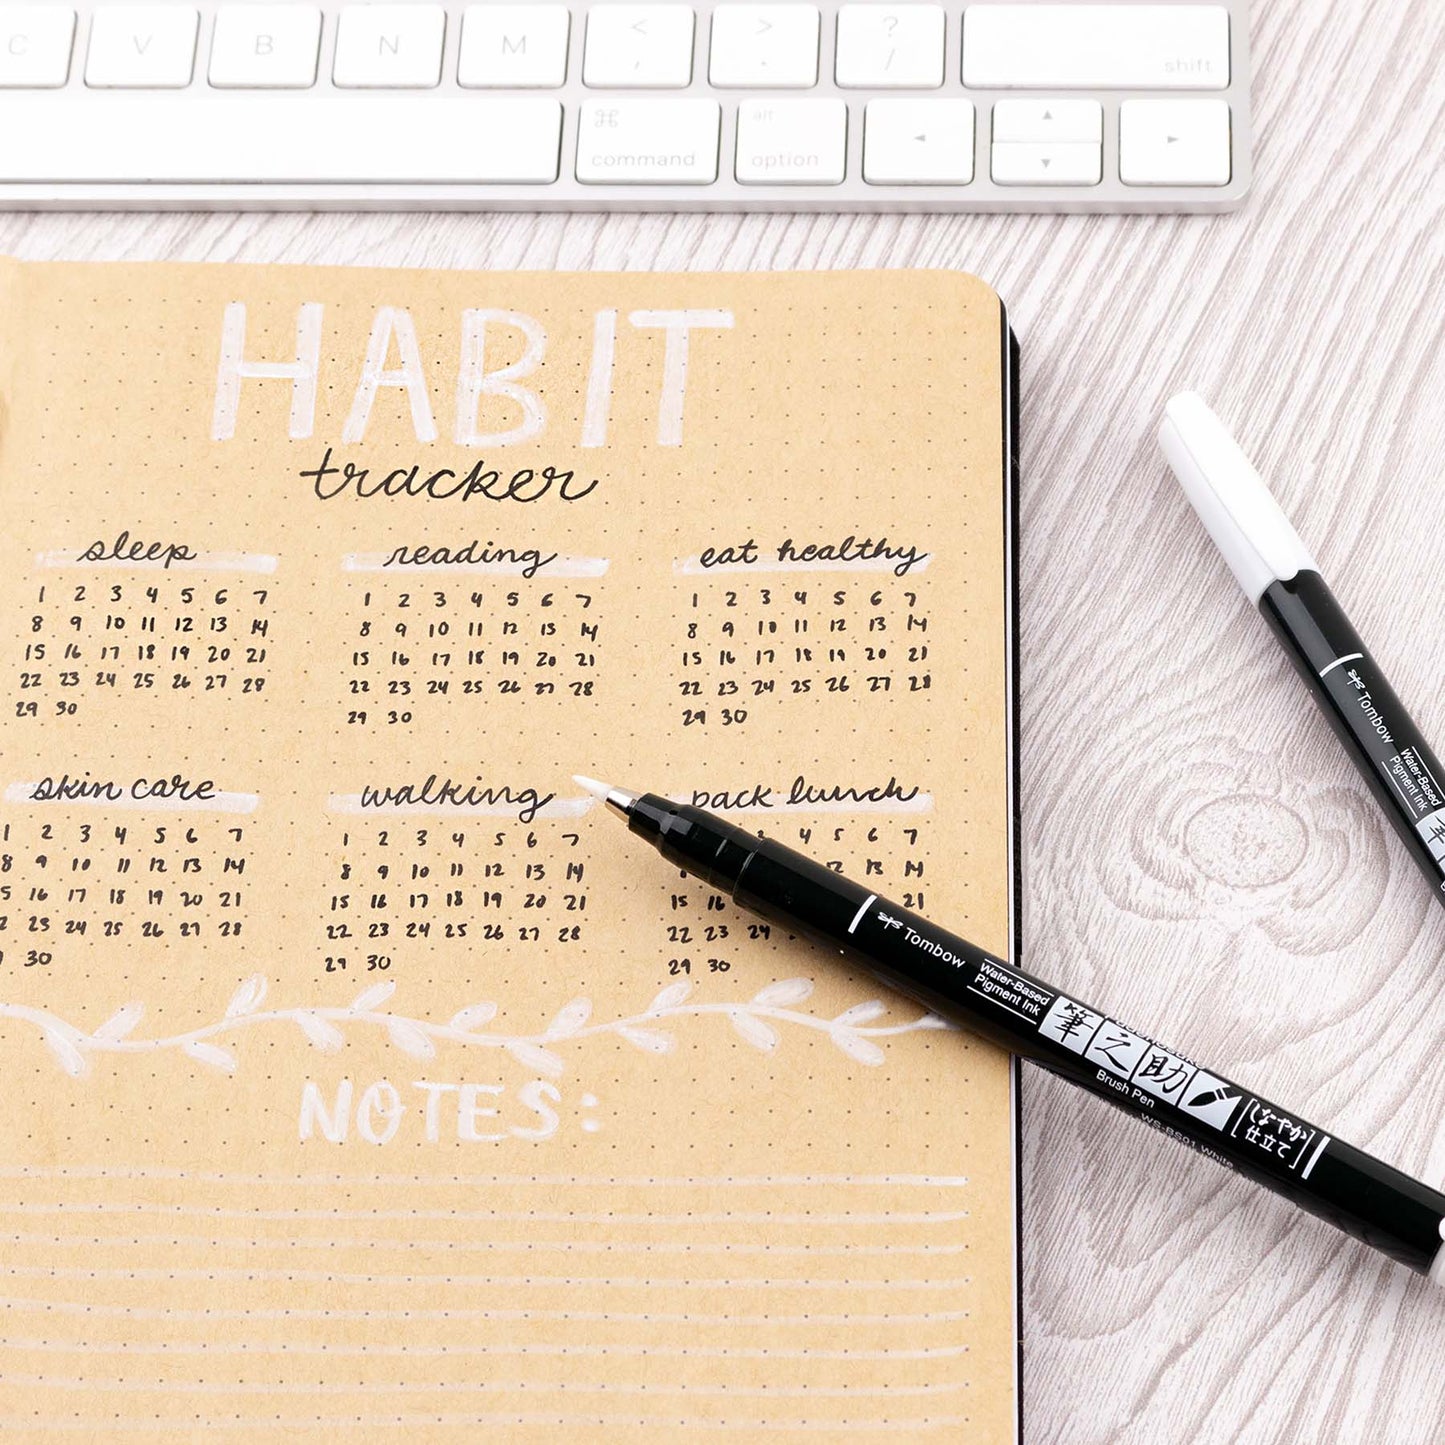 C V B N M < , > . ? / shift
⌘ command alt option ◄ ▲ ▼ ►
HABIT
tracker
sleep
1 2 3 4 5 6 7
8 9 10 11 12 13 14
15 16 17 18 19 20 21
22 23 24 25 26 27 28
29 30
reading
1 2 3 4 5 6 7
8 9 10 11 12 13 14
15 16 17 18 19 20 21
22 23 24 25 26 27 28
29 30
eat healthy
1 2 3 4 5 6 7
8 9 10 11 12 13 14
15 16 17 18 19 20 21
22 23 24 25 26 27 28
29 30
skin care
1 2 3 4 5 6 7
8 9 10 11 12 13 14
15 16 17 18 19 20 21
22 23 24 25 26 27 28
30
walking
1 2 3 4 5 6 7
8 9 10 11 12 13 14
15 16 17 18 19 20 21
22 23 24 25 26 27 28
29 30
pack lunch
3 4 5 6 7
13 14
15 16 21
22 23 24
29 30
NOTES:
Tombow
Water-Based
Pigment Ink
筆之助
Brush Pen
WS-BS01 White
しなやか
仕立て
Tombow
Water-Based
Pigment Ink